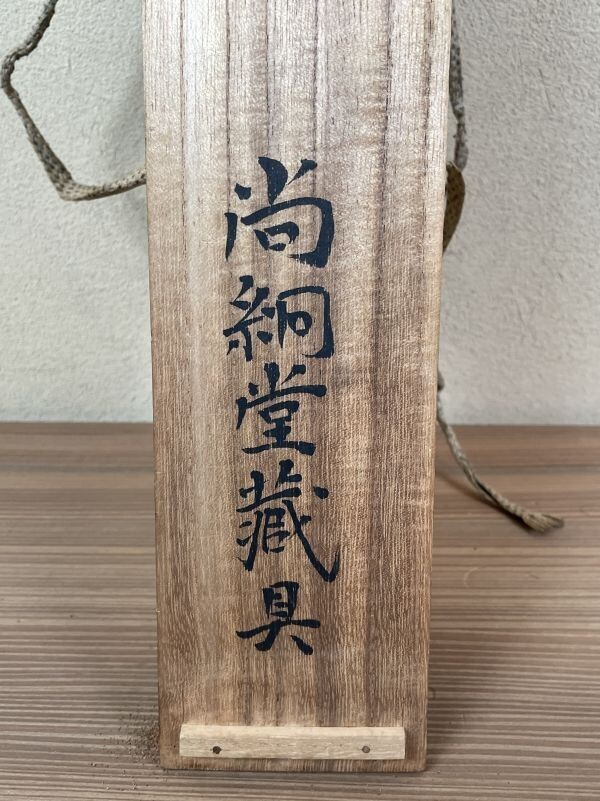 尚絅堂藏具